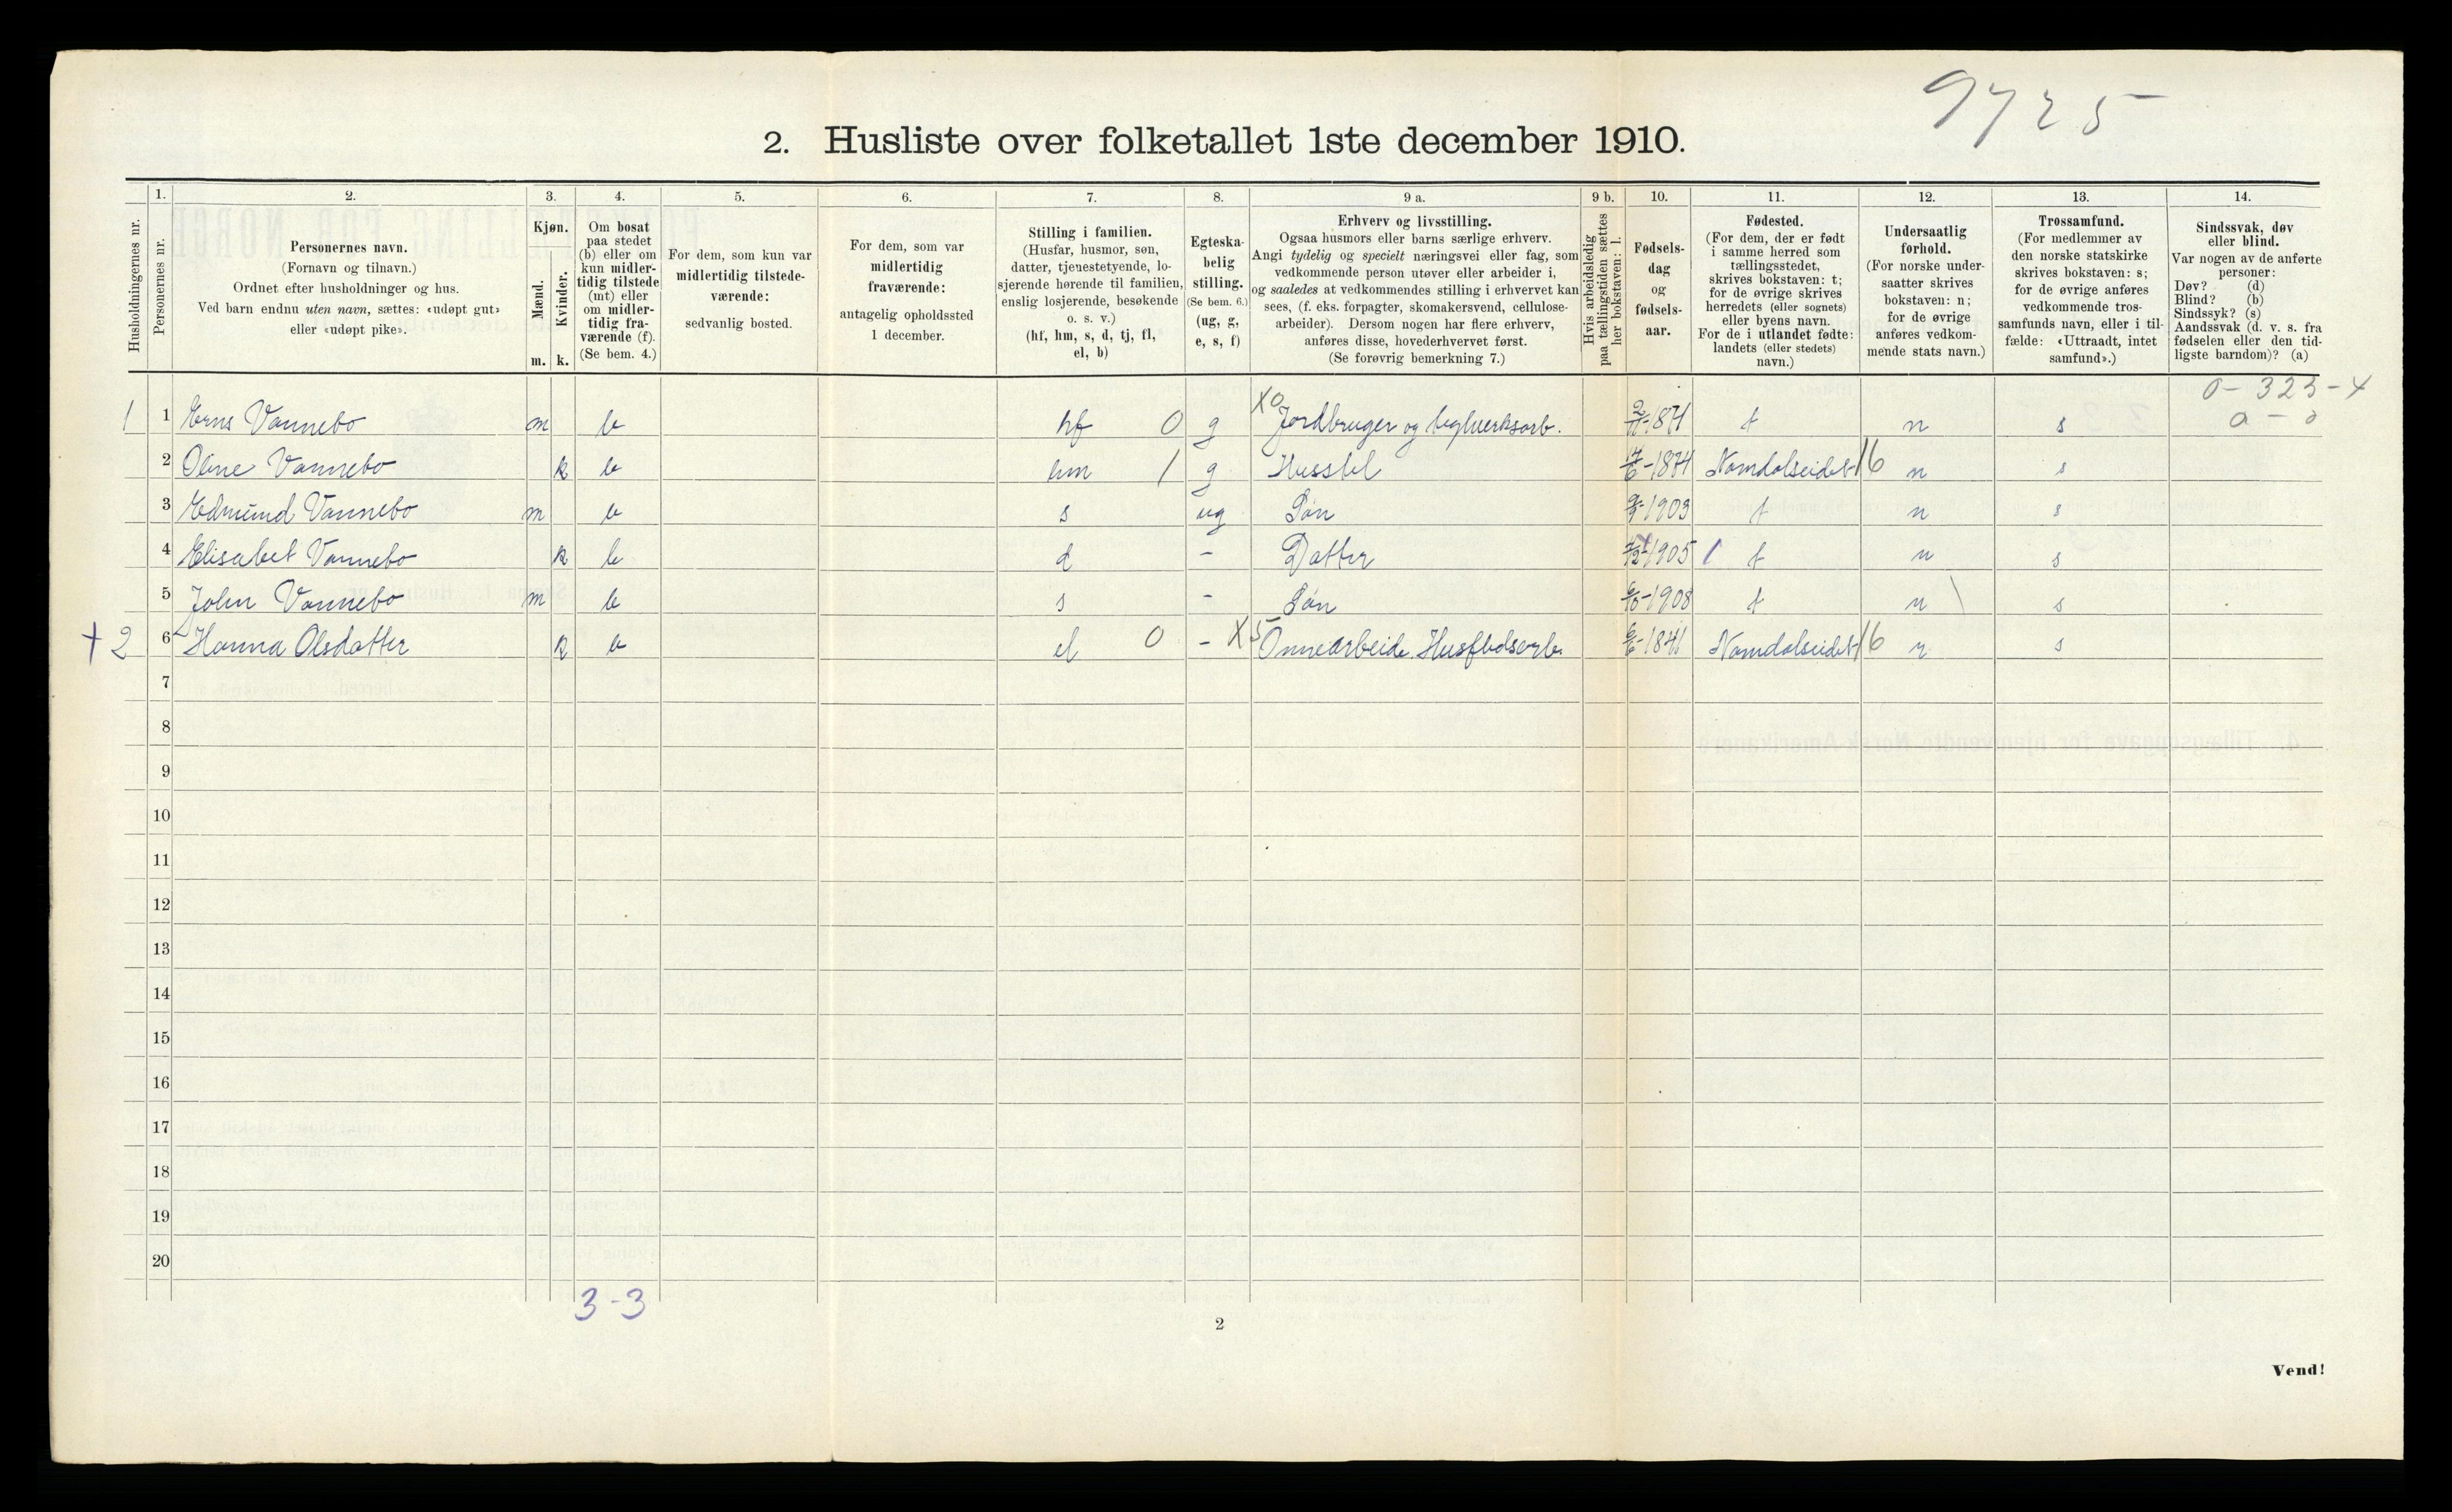 9725
2. Husliste over folketallet 1ste december 1910.
Husholdningernes nr.
1.
Personernes nr.
2.
Personernes navn.
(Fornavn og tilnavn.)
Ordnet efter husholdninger og hus.
Ved barn endnu uten navn, sættes: «udøpt gut»
eller «udøpt pike».
3.
Kjøn.
Mænd.
m.
Kvinder.
k.
4.
Om bosat
paa stedet
(b) eller om
kun midler-
tidig tilstede
(mt) eller
om midler-
tidig fra-
værende (f).
(Se bem. 4.)
5.
For dem, som kun var
midlertidig tilstede-
værende:
sedvanlig bosted.
6.
For dem, som var
midlertidig
fraværende:
antagelig opholdssted
1 december.
7.
Stilling i familien.
(Husfar, husmor, søn,
datter, tjenestetyende, lo-
sjerende hørende til familien,
enslig losjerende, besøkende
o. s. v.)
(hf, hm, s, d, tj, fl,
el, b)
8.
Egteska-
belig
stilling.
(Se bem. 6.)
(ug, g,
e, s, f)
9 a.
Erhverv og livsstilling.
Ogsaa husmors eller barns særlige erhverv.
Angi tydelig og specielt næringsvei eller fag, som
vedkommende person utøver eller arbeider i,
og saaledes at vedkommendes stilling i erhvervet kan
sees, (f. eks. forpagter, skomakersvend, cellulose-
arbeider). Dersom nogen har flere erhverv,
anføres disse, hovederhvervet først.
(Se forøvrig bemerkning 7.)
9 b.
Hvis arbeidsledig
paa tællingstiden sættes
her bokstaven: l.
10.
Fødsels-
dag
og
fødsels-
aar.
11.
Fødested.
(For dem, der er født
i samme herred som
tællingsstedet,
skrives bokstaven: t;
for de øvrige skrives
herredets (eller sognets)
eller byens navn.
For de i utlandet fødte:
landets (eller stedets)
navn.)
12.
Undersaatlig
forhold.
(For norske under-
saatter skrives
bokstaven: n;
for de øvrige
anføres vedkom-
mende stats navn.)
13.
Trossamfund.
(For medlemmer av
den norske statskirke
skrives bokstaven: s;
for de øvrige anføres
vedkommende tros-
samfunds navn, eller i til-
fælde: «Uttraadt, intet
samfund».)
14.
Sindssvak, døv
eller blind.
Var nogen av de anførte
personer:
Døv? (d)
Blind? (b)
Sindssyk? (s)
Aandssvak (d. v. s. fra
fødselen eller den tid-
ligste barndom)? (a)
0 - 323 - 4
1 1 Erns Vannebo m b hf 0 g X0 Jordbruger og teglverksarb. t n s
2 Oline Vannebo k b hm 1 g Husstel 1874 Namdalseidet 16 n s
3 Edmund Vannebo m b s ug Søn 1903 t n s
4 Elisabet Vannebo k b d - Datter 1905 t n s
5 John Vannebo m b s - Søn 1908 t n s
+ 2 6 Hanna Olsdatter k b el 0 - X5 Onnearbeide. Husflidsarb. 1841 Namdalseidet 16 n s
7
8
9
10
11
12
13
14
15
16
17
18
19
20
3 - 3
2
Vend!